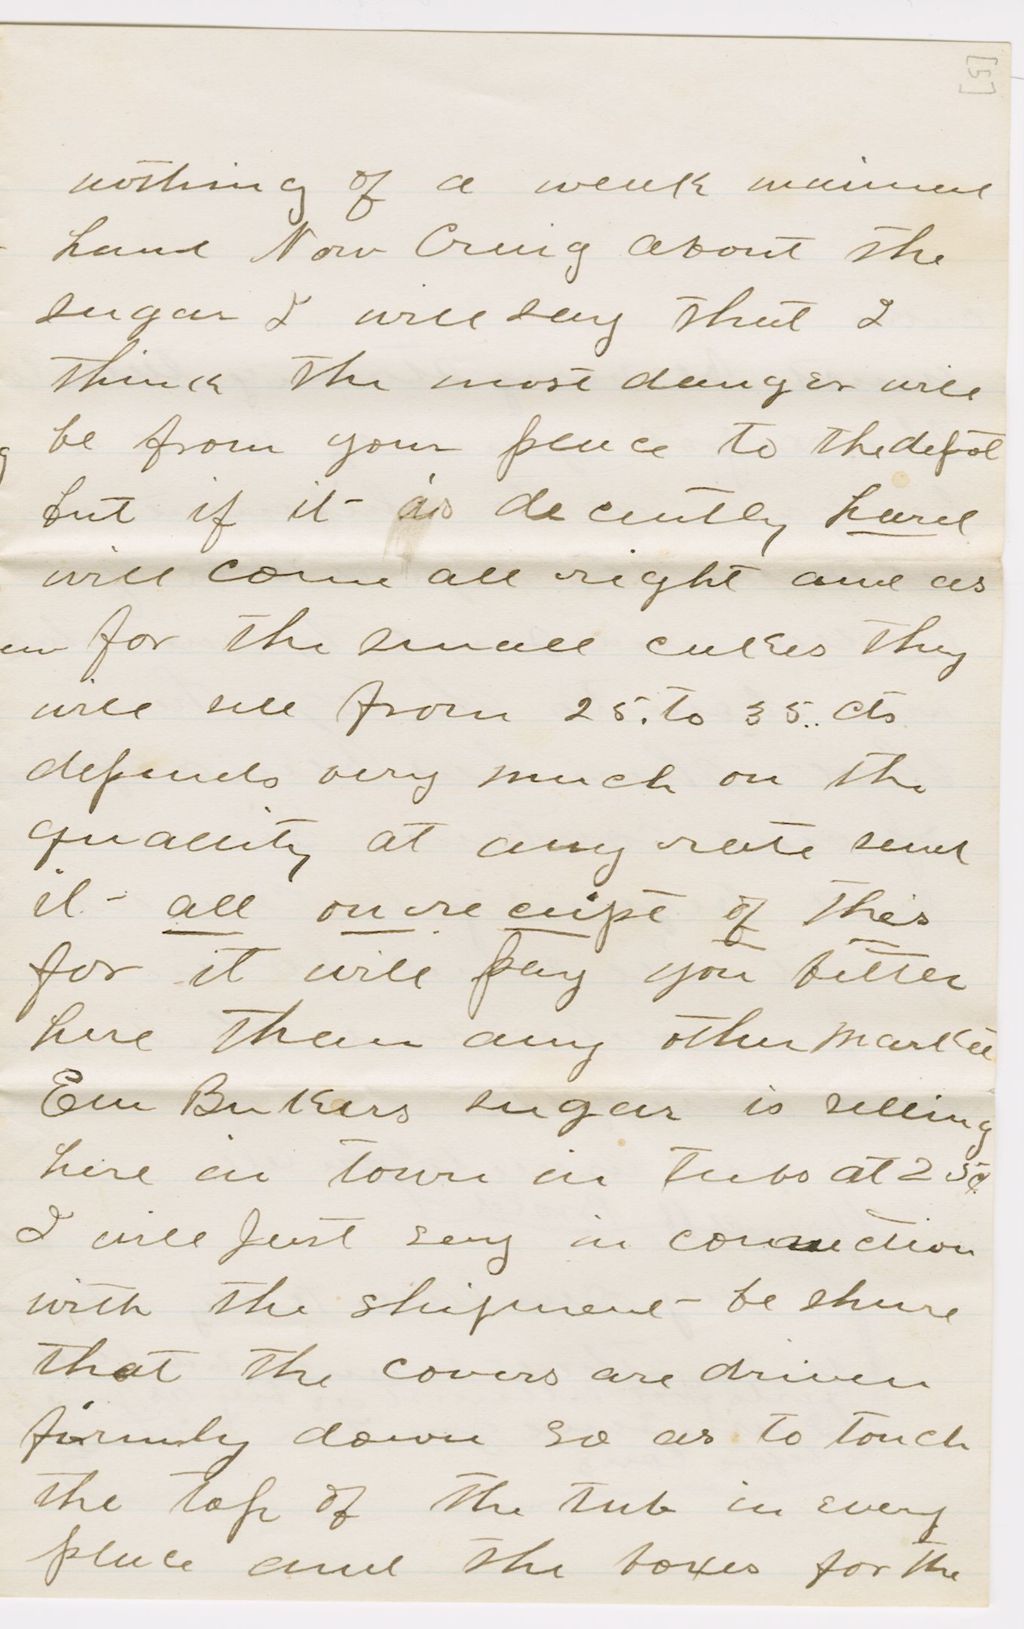 [5]
nothing of a weak mained
hand Now Craig about the
sugar I will say that I
think the most danger will
be from your place to the depot
but if it is decently hard
will come all right and as
for the small cakes they
will sell from 25. to 35.. cts
depends very much on the
quallity at any rate send
it all on receipt of this
for it will pay you better
here than any other market
Em Bakers sugar is selling
here in town in tubs at 25¢
I will just say in connection
with the shipment be shure
that the covers are driven
firmly down so as to touch
the top of the tub in every
place and the boxes for the